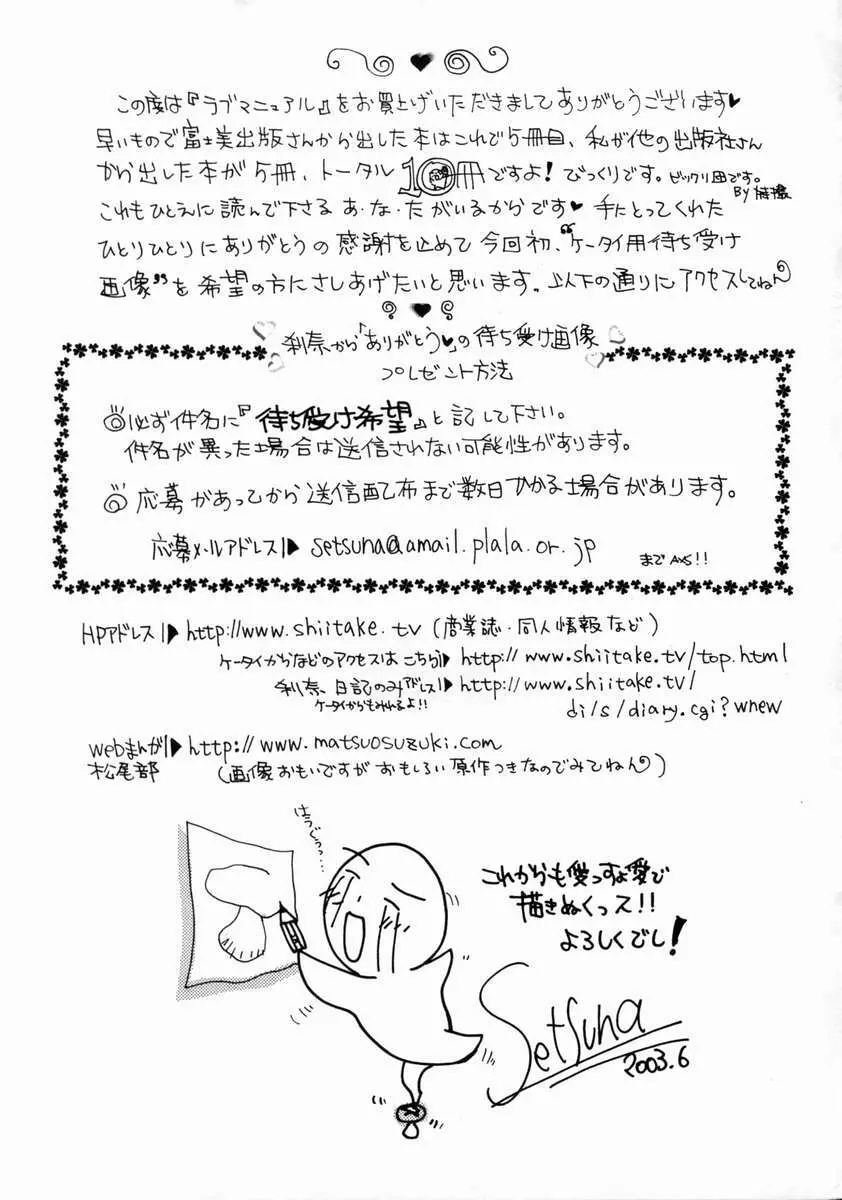 この度は『ラブマニュアル』をお買上げいただきましてありがとうございます♥
早いもので富士美出版さんから出した本はこれで5冊目、私が他の出版社さん
から出した本が5冊、トータル10冊ですよ!びっくりです。ビックリ団です。
By
これもひとえに読んで下さるあ・な・たがいるからです♥手にとってくれた
ひとりひとりにありがとうの感謝を止めて今回初、“ケータイ用待ち受け
画像”を希望の方にさしあげたいと思います。以下の通りにアクセスしてねん
刹奈から「ありがとう♥」の待ち受け画像
プレゼント方法
◎必ず件名に『待ち受け希望』と記して下さい。
件名が異った場合は送信されない可能性があります。
◎応募があってから送信配布まで数日かかる場合があります。
応募メールアドレス▶setsuna@amail.plala.or.jp
まで
HPアドレス▶http://www.shiitake.tv(商業誌・同人情報など)
ケータイからなどのアクセスはこちら▶http://www.shiitake.tv/top.html
刹奈、日記のみアドレス▶http://www.shiitake.tv/
ケータイからもみれるよ!!
di/s/diary.cgi?wnew
webまんが▶http://www.matsuosuzuki.com
松尾部(画像おもいですがおもしろい原作つきなのでみてねん)
これからも愛っすよ愛で
描きぬくっス!!
よろしくでし!
Setsuna
2003.6